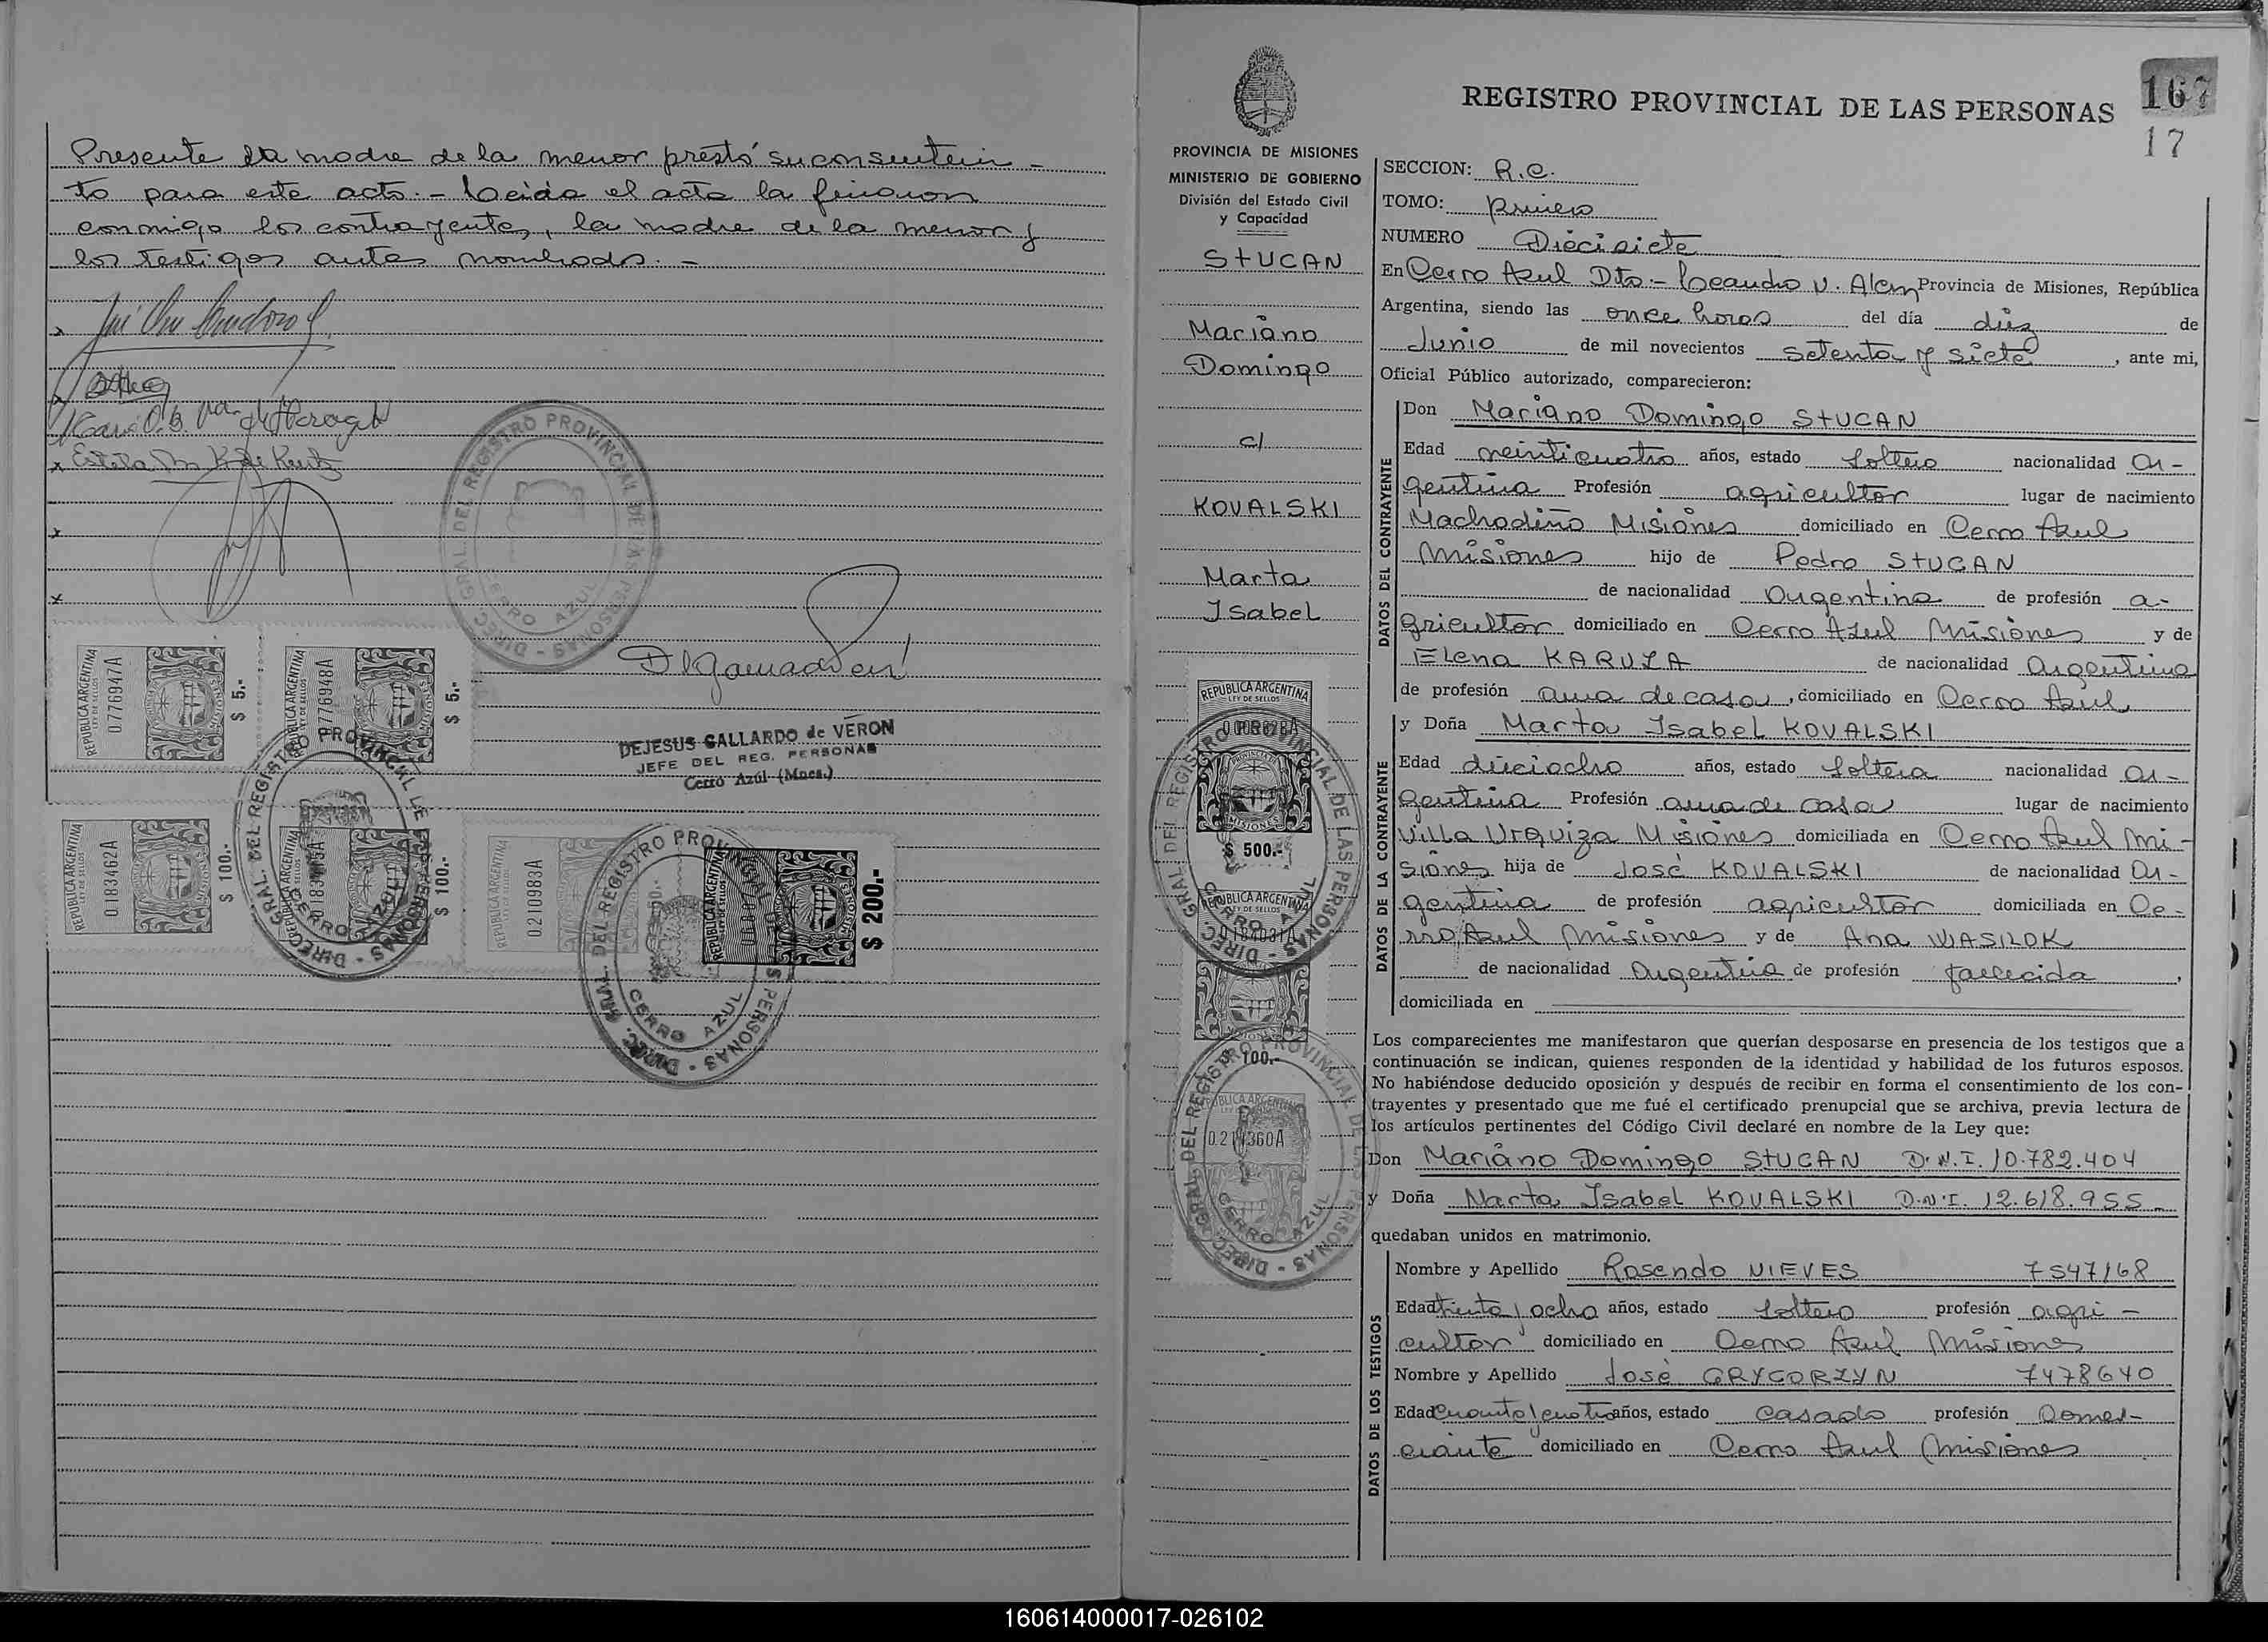 Presente la madre de la menor prestó su consentimien-
to para este acto.- Leida el acta la firmaron
conmigo los contrayentes, la madre de la menor y
los testigos antes nombrados.-
DIREC. GRAL. DEL REGISTRO PROVINCIAL DE LAS PERSONAS
CERRO AZUL
DEJESUS GALLARDO de VERON
JEFE DEL REG. PERSONAS
Cerro Azúl (Mnes.)
REPUBLICA ARGENTINA
LEY DE SELLOS
0776947A
$ 5.-
REPUBLICA ARGENTINA
LEY DE SELLOS
0776948A
$ 5.-
REPUBLICA ARGENTINA
0183462A
$ 100.-
REPUBLICA ARGENTINA
$ 100.-
DIREC. GRAL. DEL REGISTRO PROVINCIAL DE LAS PERSONAS
CERRO AZUL
REPUBLICA ARGENTINA
0210983A
REPUBLICA ARGENTINA
$ 200.-
DIREC. GRAL. DEL REGISTRO PROVINCIAL DE LAS PERSONAS
CERRO AZUL
REGISTRO PROVINCIAL DE LAS PERSONAS
167
17
PROVINCIA DE MISIONES
MINISTERIO DE GOBIERNO
División del Estado Civil
y Capacidad
STUCAN
Mariano
Domingo
c/
KOVALSKI
Marta
Isabel
REPUBLICA ARGENTINA
LEY DE SELLOS
MISIONES
$ 500.-
REPUBLICA ARGENTINA
LEY DE SELLOS
0184031A
100.-
DIREC. GRAL. DEL REGISTRO PROVINCIAL DE LAS PERSONAS
CERRO AZUL
SECCION: R.C.
TOMO: Primero
NUMERO Diecisiete
En Cerro Azul Dto.- Leandro N. Alem Provincia de Misiones, República
Argentina, siendo las once horas del día diez de
Junio de mil novecientos setenta y siete, ante mi,
Oficial Público autorizado, comparecieron:
DATOS DEL CONTRAYENTE
Don Mariano Domingo STUCAN
Edad veinticuatro años, estado Soltero nacionalidad Ar-
gentina Profesión agricultor lugar de nacimiento
Machadiño Misiones domiciliado en Cerro Azul
Misiones hijo de Pedro STUCAN
de nacionalidad Argentina de profesión a-
gricultor domiciliado en Cerro Azul Misiones y de
Elena KARUZA de nacionalidad Argentina
de profesión ama de casa, domiciliado en Cerro Azul
DATOS DE LA CONTRAYENTE
y Doña Marta Isabel KOVALSKI
Edad dieciocho años, estado Soltera nacionalidad Ar-
gentina Profesión ama de casa lugar de nacimiento
Villa Urquiza Misiones domiciliada en Cerro Azul Mi-
siones hija de José KOVALSKI de nacionalidad Ar-
gentina de profesión agricultor domiciliada en Ce-
rro Azul Misiones y de Ana WASILOK
de nacionalidad Argentina de profesión fallecida,
domiciliada en
Los comparecientes me manifestaron que querían desposarse en presencia de los testigos que a
continuación se indican, quienes responden de la identidad y habilidad de los futuros esposos.
No habiéndose deducido oposición y después de recibir en forma el consentimiento de los con-
trayentes y presentado que me fué el certificado prenupcial que se archiva, previa lectura de
los artículos pertinentes del Código Civil declaré en nombre de la Ley que:
Don Mariano Domingo STUCAN D.N.I. 10.782.404
y Doña Marta Isabel KOVALSKI D.N.I. 12.618.955
quedaban unidos en matrimonio.
DATOS DE LOS TESTIGOS
Nombre y Apellido Rosendo NIEVES 7547168
Edad treinta y ocho años, estado Soltero profesión agri-
cultor domiciliado en Cerro Azul Misiones
Nombre y Apellido José GRYGORZYN 7478640
Edad Cuarenta y cuatro años, estado Casado profesión Comer-
ciante domiciliado en Cerro Azul Misiones
160614000017-026102